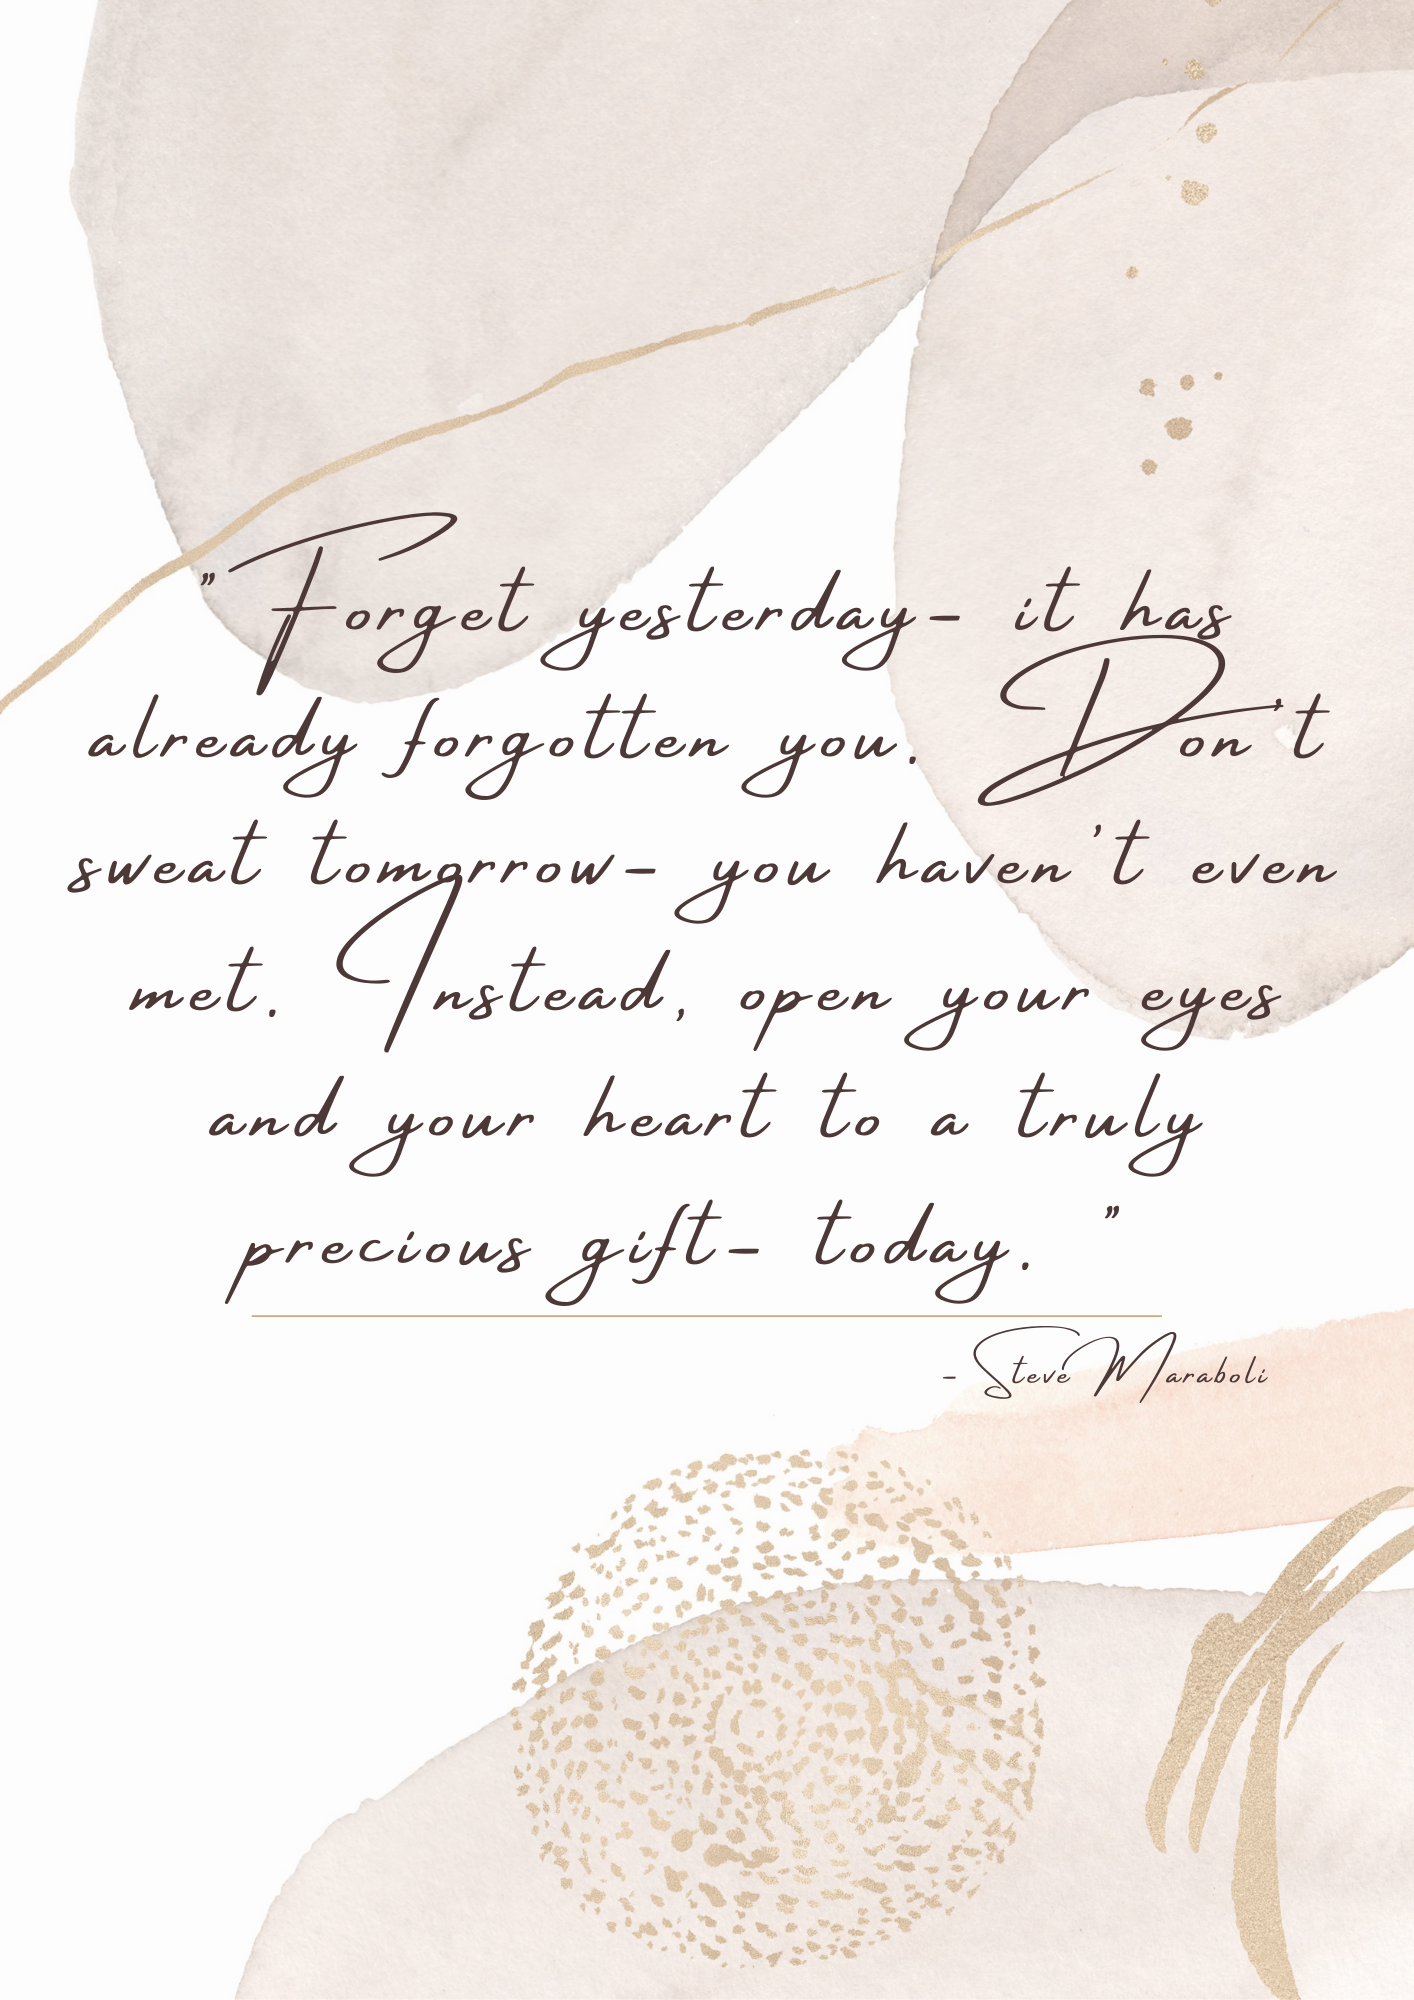 "Forget yesterday- it has
already forgotten you. Don't
sweat tomorrow- you haven't even
met. Instead, open your eyes
and your heart to a truly
precious gift- today."
- Steve Maraboli